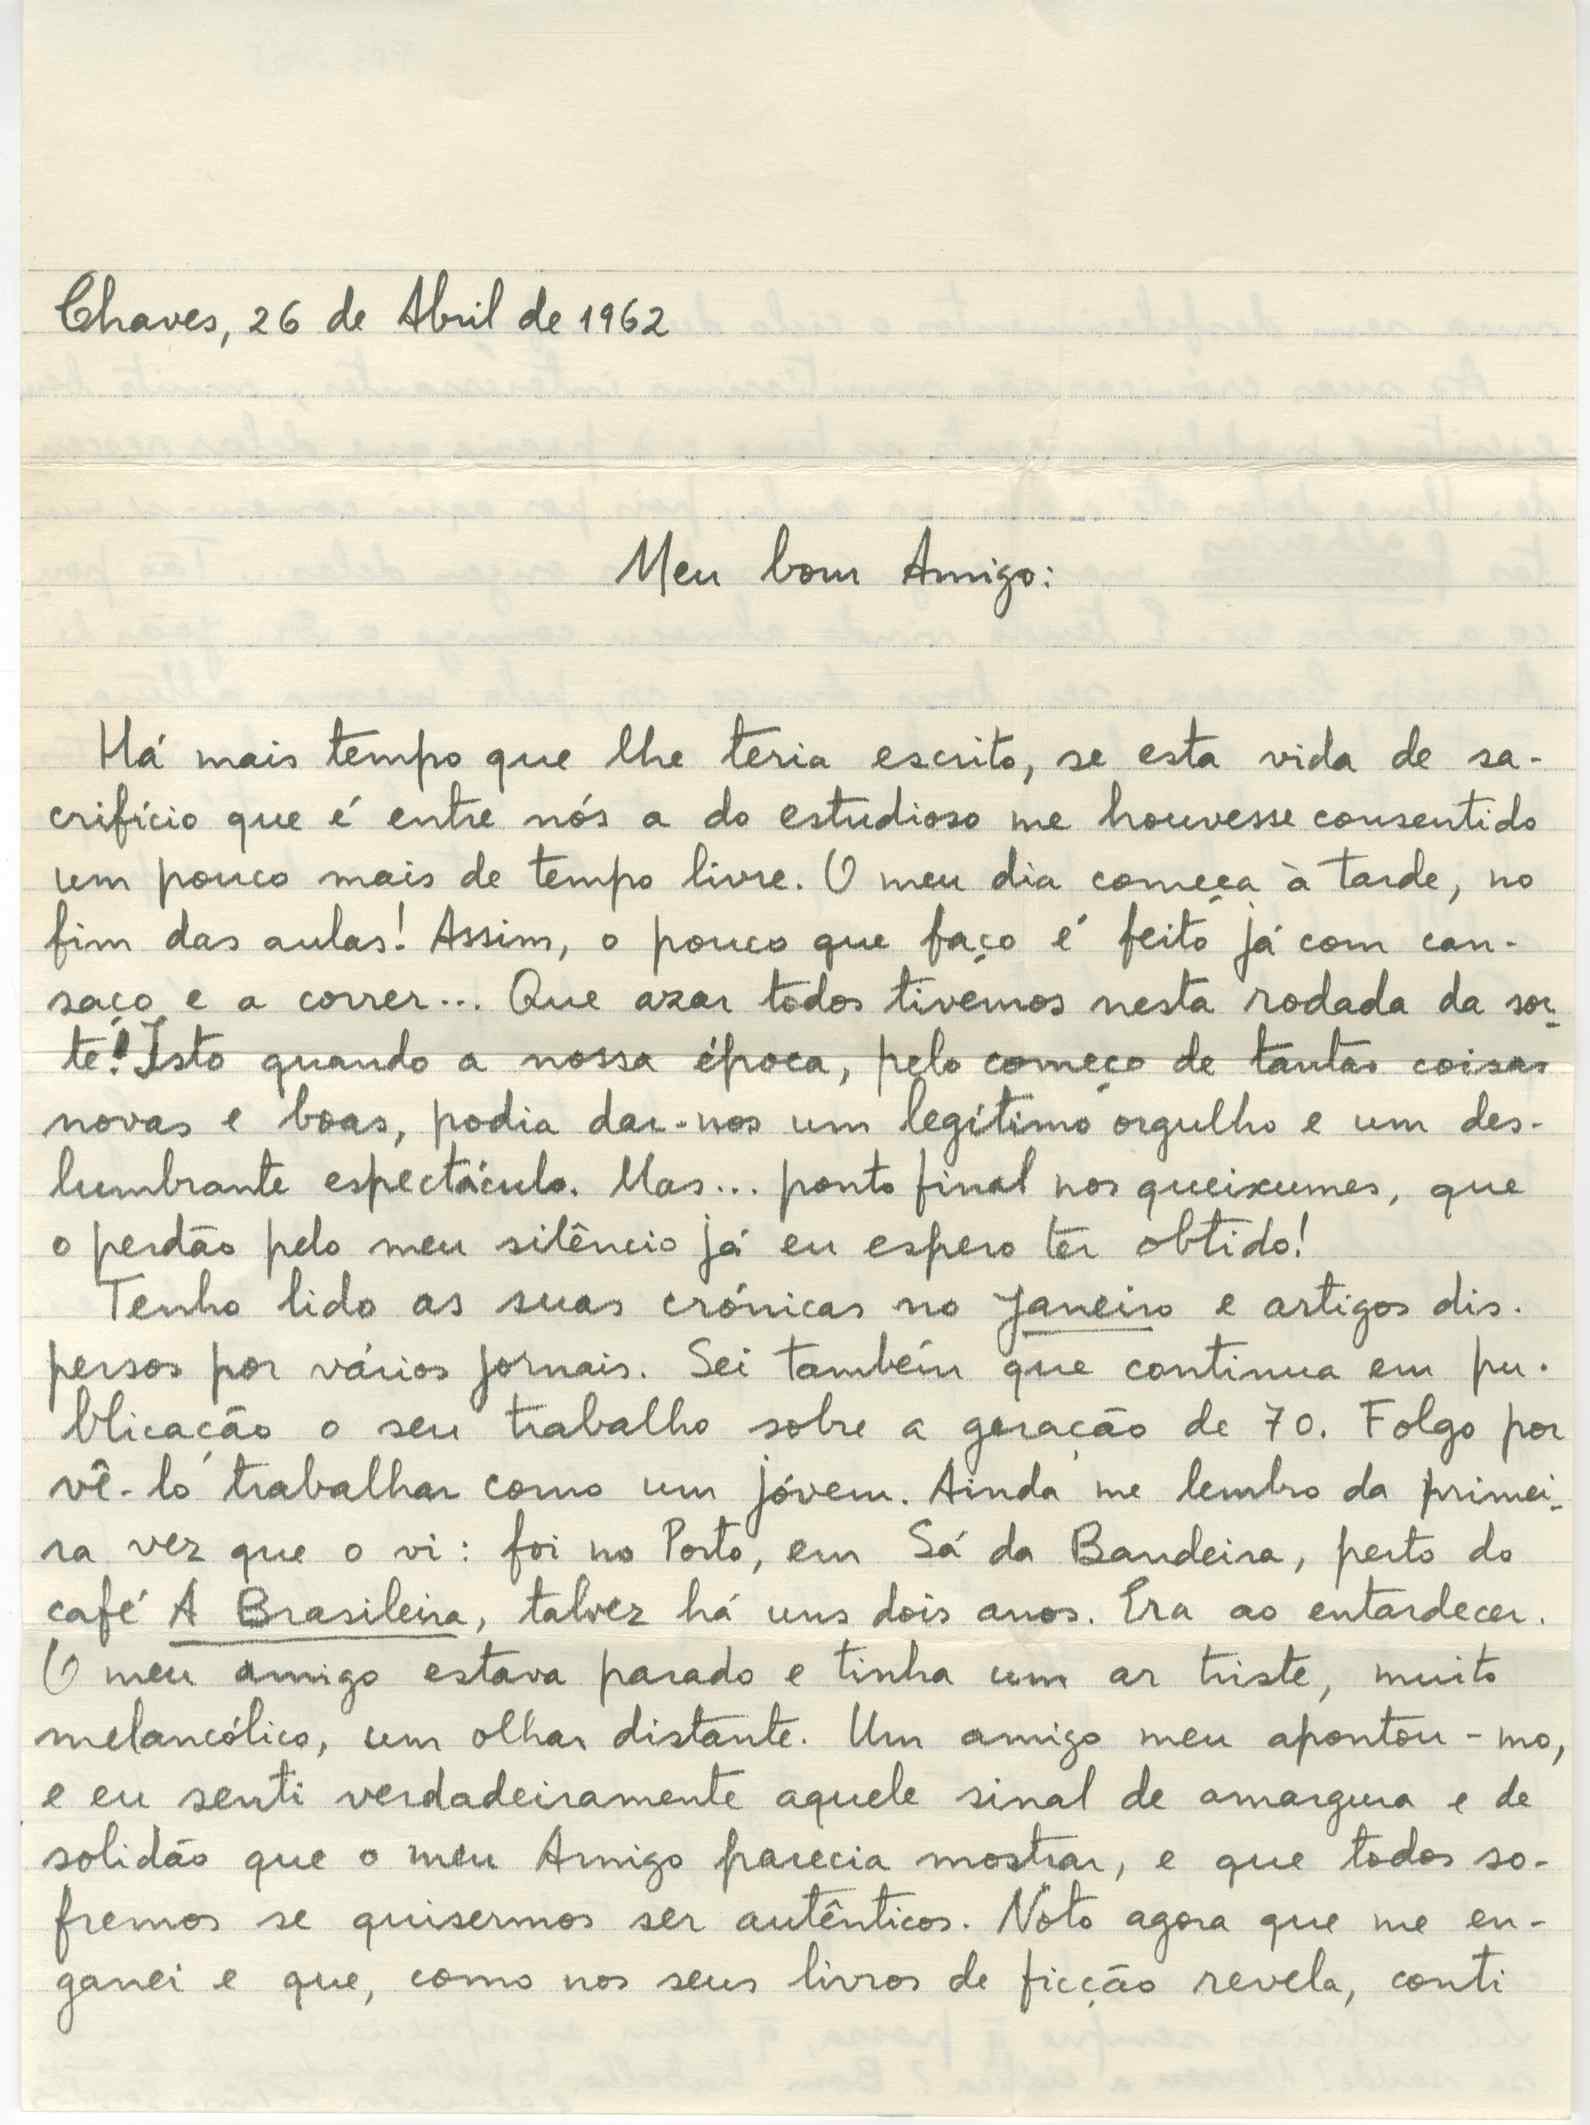 Chaves, 26 de Abril de 1962
Meu bom Amigo:
Há mais tempo que lhe teria escrito, se esta vida de sa-
crifício que é entre nós a do estudioso me houvesse consentido
um pouco mais de tempo livre. O meu dia começa à tarde, no
fim das aulas! Assim, o pouco que faço é feito já com can-
saço e a correr... Que azar todos tivemos nesta rodada da sor-
te! Isto quando a nossa época, pelo começo de tantas coisas
novas e boas, podia dar-nos um legítimo orgulho e um des-
lumbrante espectáculo. Mas... ponto final nos queixumes, que
o perdão pelo meu silêncio já eu espero ter obtido!
Tenho lido as suas crónicas no Janeiro e artigos dis-
persos por vários jornais. Sei também que continua em pu-
blicação o seu trabalho sobre a geração de 70. Folgo por
vê-lo trabalhar como um jóvem. Ainda me lembro da primei-
ra vez que o vi: foi no Porto, em Sá da Bandeira, perto do
café A Brasileira, talvez há uns dois anos. Era ao entardecer.
O meu amigo estava parado e tinha um ar triste, muito
melancólico, um olhar distante. Um amigo meu apontou-mo,
e eu senti verdadeiramente aquele sinal de amargura e de
solidão que o meu Amigo parecia mostrar, e que todos so-
fremos se quisermos ser autênticos. Noto agora que me en-
ganei e que, como nos seus livros de ficção revela, conti